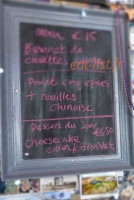 menu € 15
Beignet de
crevettes
Poulet cinq épices
+ nouilles
chinoise
Dessert du jour
€6.50
Cheesecake
citron